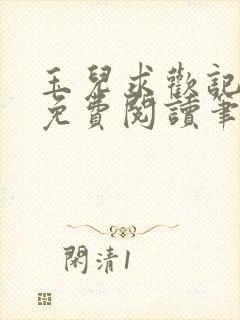 玉兒求歡記
免費閱讀筆
閑清1